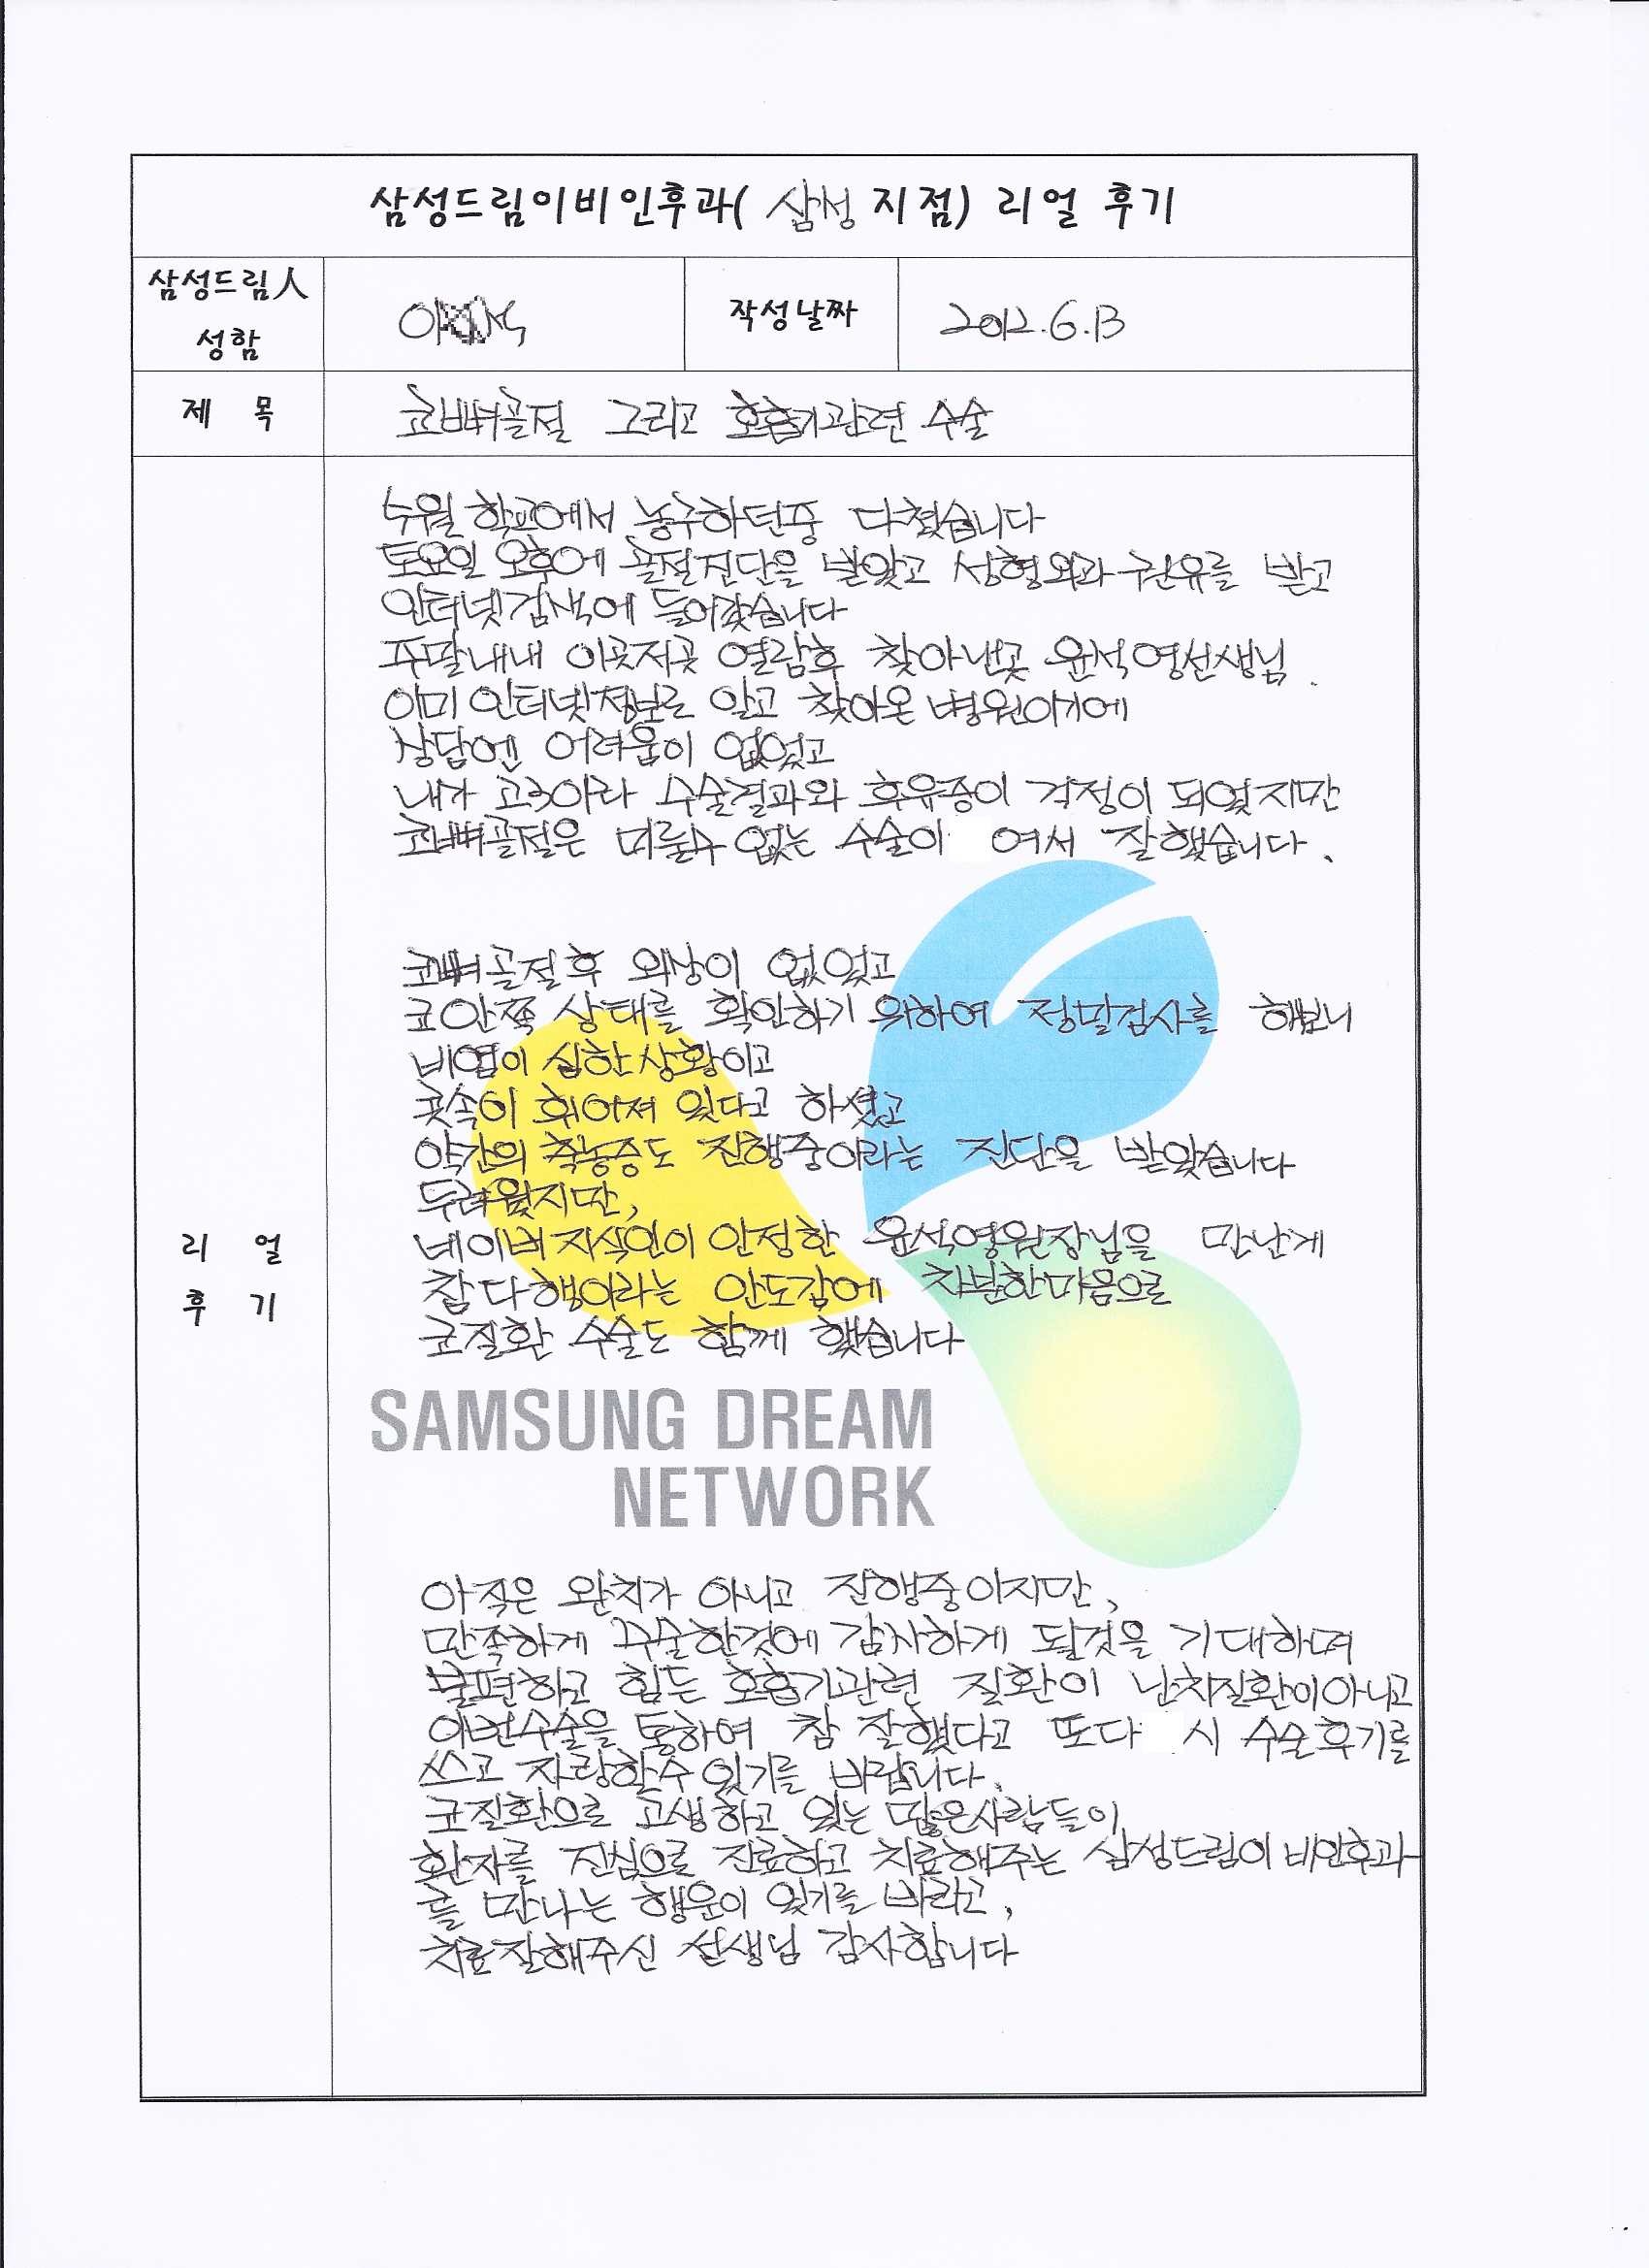 삼성드림이비인후과( 삼성 지점) 리얼 후기
삼성드림人
성함
작성날짜
2012.6.13
제 목
코뼈골절 그리고 호흡기관련 수술
학교에서 농구하던중 다쳤습니다
토요일 오후에 골절진단을 받았고 성형외과 권유를 받고
인터넷검색에 들어갔습니다
주말내내 이곳저곳 열람후 찾아낸곳 윤석영선생님.
이미 인터넷정보로 알고 찾아온 병원이기에
상담엔 어려움이 없었고
내가 고3이라 수술결과와 후유증이 걱정이 되었지만
코뼈골절은 미룰수 없는 수술이 여서 잘했습니다.
코뼈골절후 외상이 없었고
코안쪽 상태를 확인하기 위하여 정밀검사를 해보니
비염이 심한상황이고
콧속이 휘어져 있다고 하셨고
약간의 축농증도 진행중이라는 진단을 받았습니다
두려웠지만,
네이버지식인이 인정한 윤석영원장님을 만난게
참다행이라는 안도감에 차분한마음으로
코질환 수술도 함께 했습니다
SAMSUNG DREAM
NETWORK
리 얼
후 기
아직은 완치가 아니고 진행중이지만,
만족하게 수술한것에 감사하게 될것을 기대하며
불편하고 힘든 호흡기관련 질환이 난치질환이아니고
이번수술을 통하여 참 잘했다고 또다 시 수술후기를
쓰고 자랑할수있기를 바랍니다.
코질환으로 고생하고 있는 많은사람들이
환자를 진심으로 진료하고 치료해주는 삼성드림이비인후과
를 만나는 행운이 있기를 바라고,
치료잘해주신 선생님 감사합니다